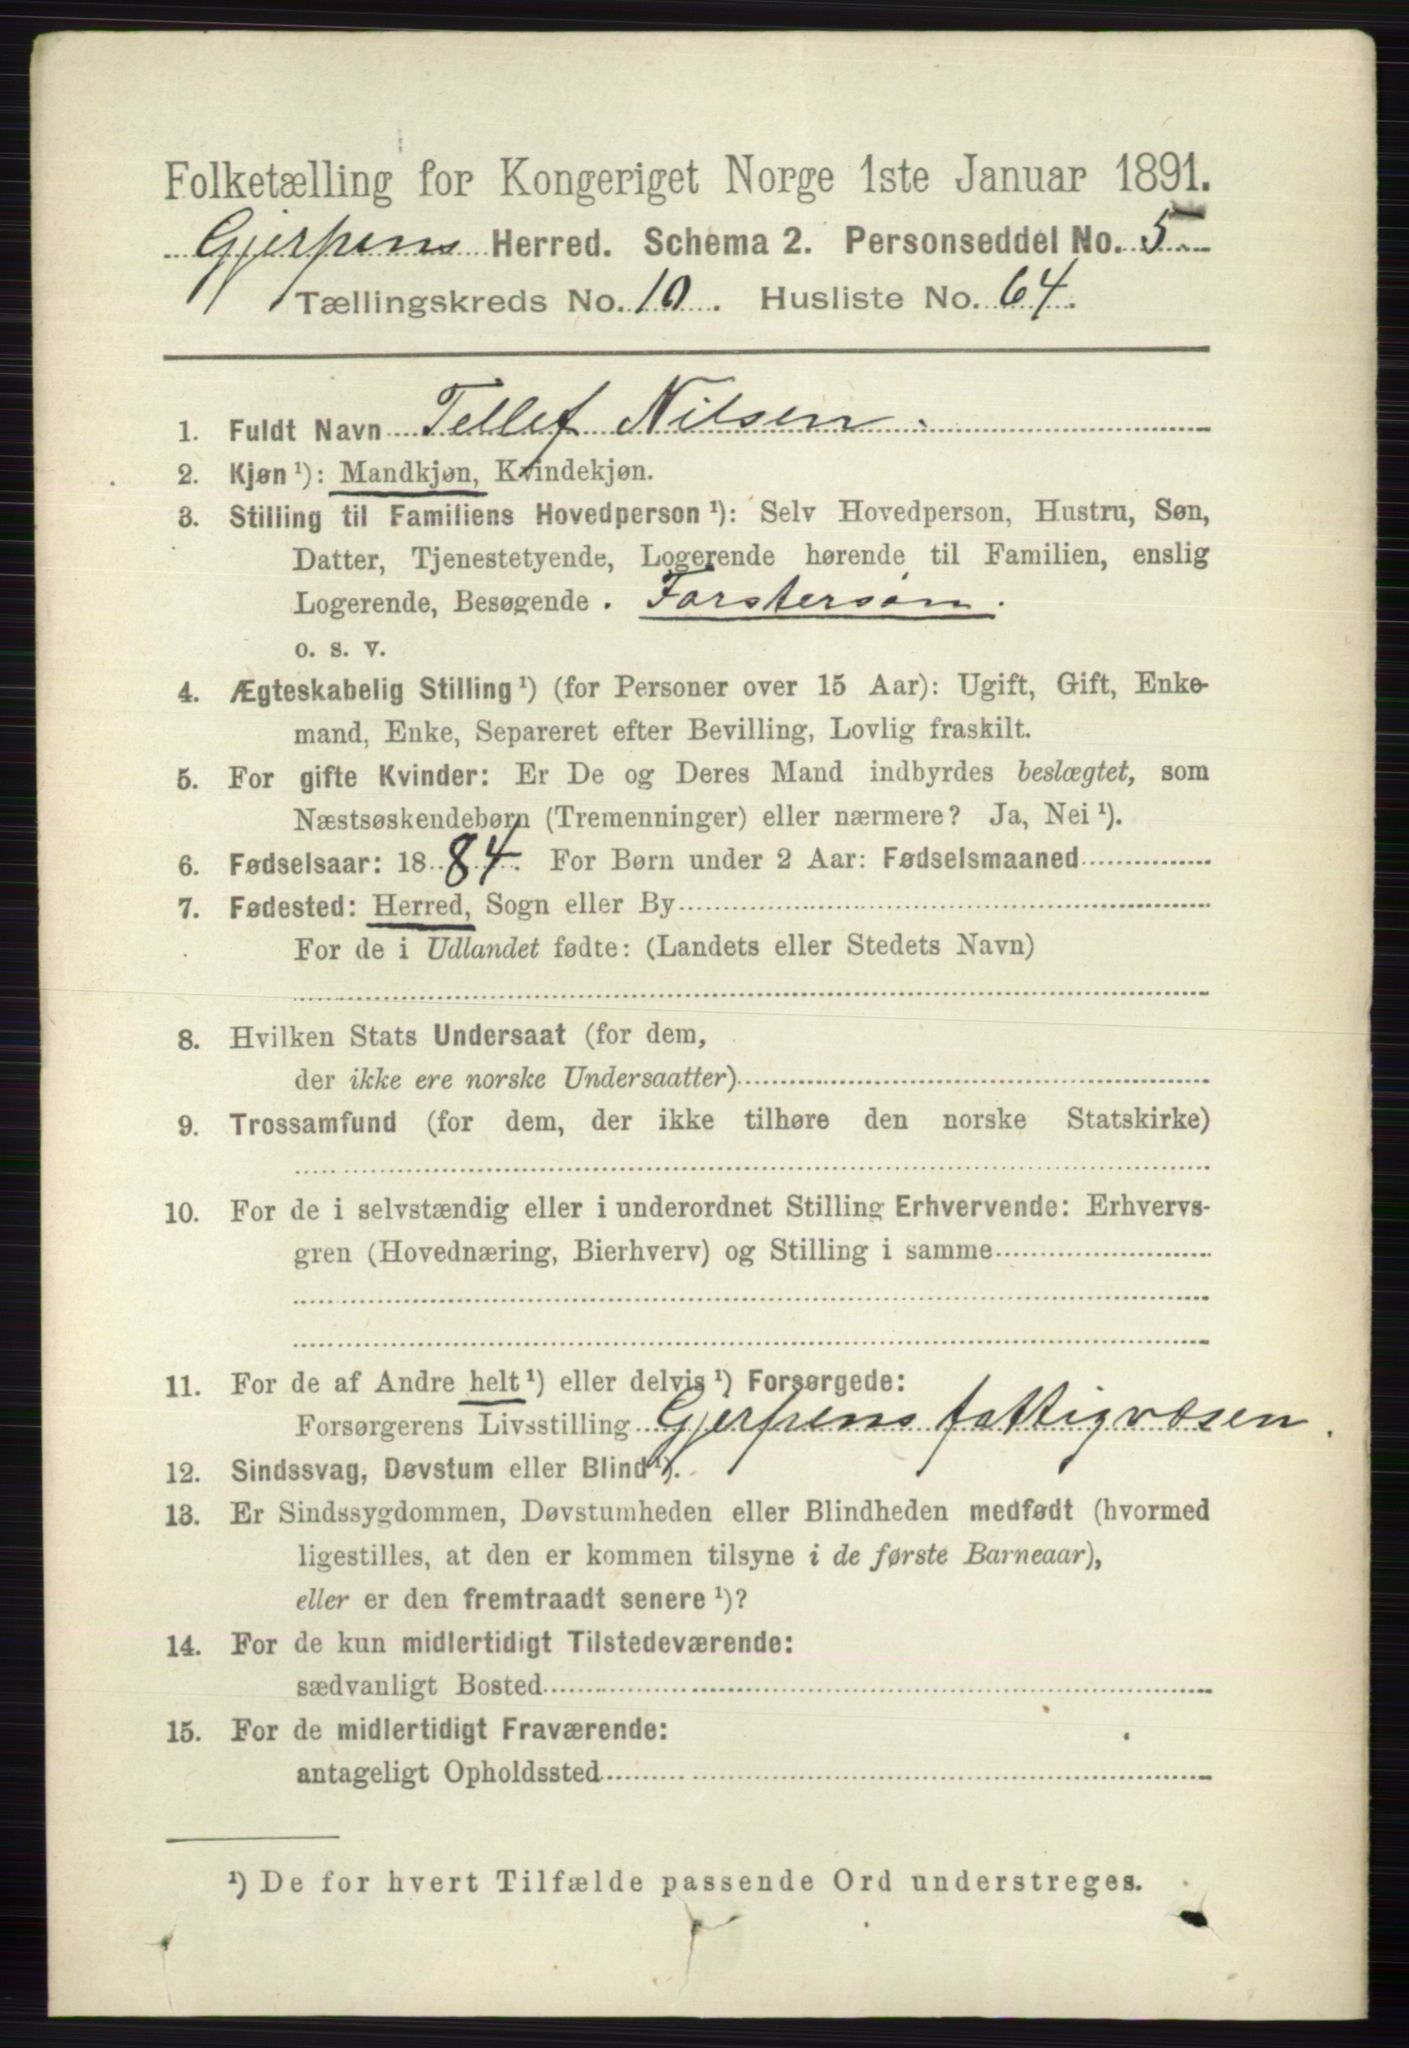 Folketælling for Kongeriget Norge 1ste Januar 1891.
Gjerpens Herred. Schema 2. Personseddel No. 5
Tællingskreds No. 10. Husliste No. 64.
1. Fuldt Navn Tellef Nilsen.
2. Kjøn ¹): Mandkjøn, Kvindekjøn.
3. Stilling til Familiens Hovedperson ¹): Selv Hovedperson, Hustru, Søn,
Datter, Tjenestetyende, Logerende hørende til Familien, enslig
Logerende, Besøgende . Forstersøn.
o. s. v.
4. Ægteskabelig Stilling ¹) (for Personer over 15 Aar): Ugift, Gift, Enke-
mand, Enke, Separeret efter Bevilling, Lovlig fraskilt.
5. For gifte Kvinder: Er De og Deres Mand indbyrdes beslægtet, som
Næstsøskendebørn (Tremenninger) eller nærmere? Ja, Nei ¹).
6. Fødselsaar: 1884. For Børn under 2 Aar: Fødselsmaaned
7. Fødested: Herred, Sogn eller By
For de i Udlandet fødte: (Landets eller Stedets Navn)
8. Hvilken Stats Undersaat (for dem,
der ikke ere norske Undersaatter)
9. Trossamfund (for dem, der ikke tilhøre den norske Statskirke)
10. For de i selvstændig eller i underordnet Stilling Erhvervende: Erhvervs-
gren (Hovednæring, Bierhverv) og Stilling i samme
11. For de af Andre helt ¹) eller delvis ¹) Forsørgede:
Forsørgerens Livsstilling Gjerpens fattigvæsen.
12. Sindssvag, Døvstum eller Blind ¹).
13. Er Sindssygdommen, Døvstumheden eller Blindheden medfødt (hvormed
ligestilles, at den er kommen tilsyne i de første Barneaar),
eller er den fremtraadt senere ¹)?
14. For de kun midlertidigt Tilstedeværende:
sædvanligt Bosted
15. For de midlertidigt Fraværende:
antageligt Opholdssted
¹) De for hvert Tilfælde passende Ord understreges.